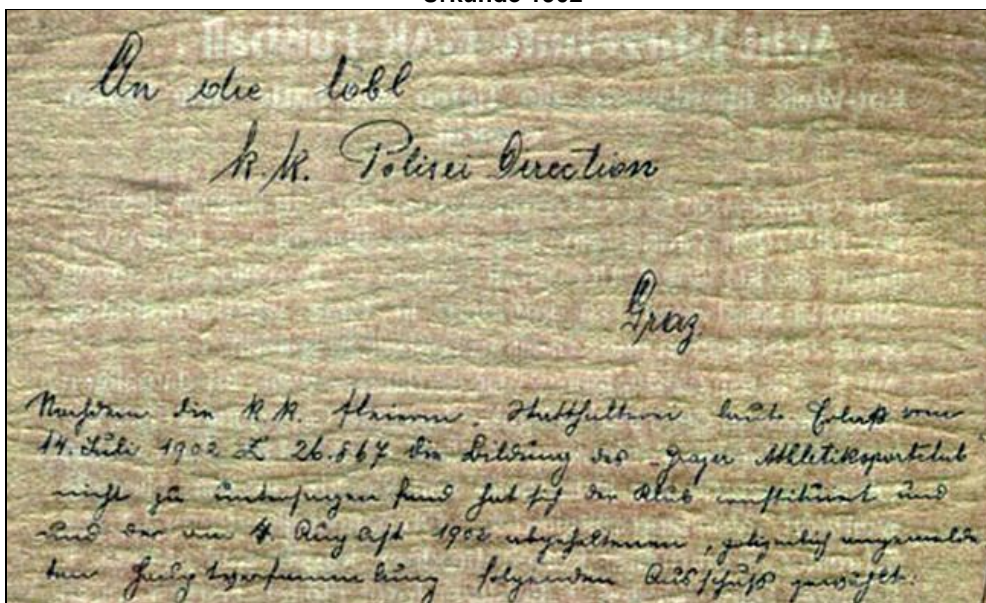 Urkunde 1902
An die löbl
k. k. Polizei Direction
Graz
Nachdem die k. k. steierm. Statthalterei laut Erlaß vom
14. Juli 1902 Z die Bildung des „Grazer Athletiksportclub"
nicht zu untersagen fand hat sich der Klub constituirt und
und der am 4 August 1902 abgehaltenen, polizeilich angemelde
ten Hauptversammlung folgenden Ausschuß gewählt: